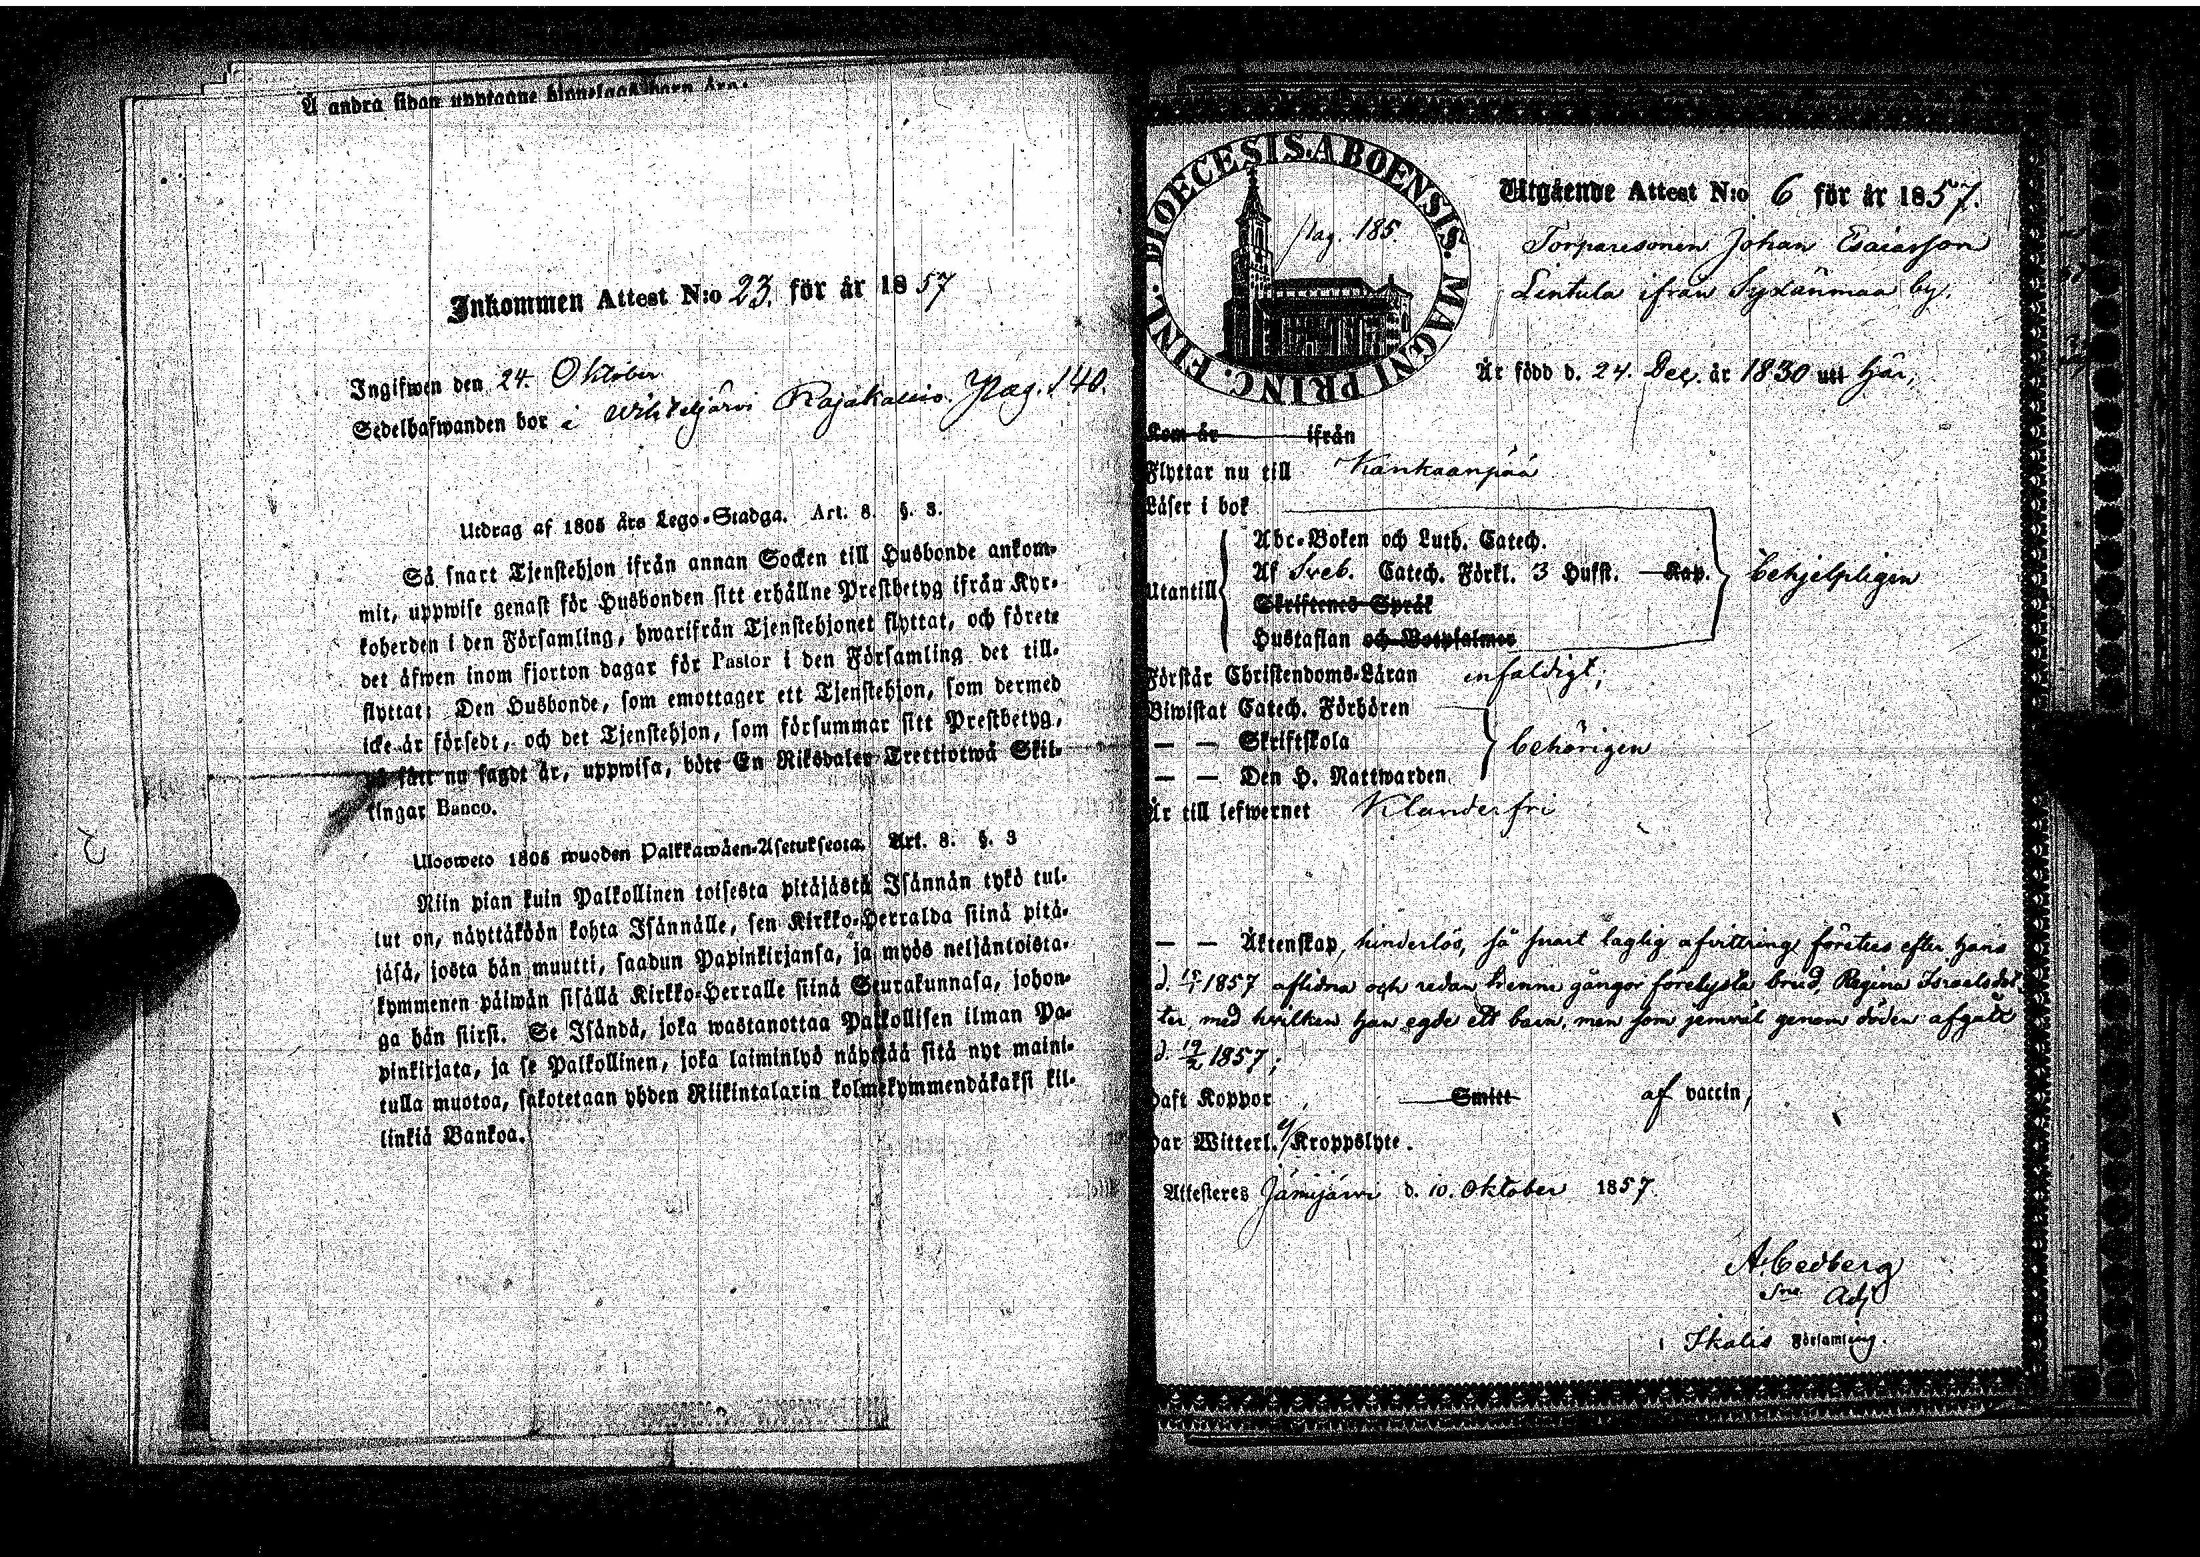 Å andra sidan upptagne
Inkommen Attest N:o 23. för år 1857
Ingifwen den 24. Oktober
Sedelhafwanden bor i Wihteljärvi Rajakallio. Pag. 140.
Utdrag af 1805 års Lego-Stadga. Art. 8. §. 3.
Så snart Tjenstehjon ifrån annan Socken till Husbonde ankom-
mit, uppwise genast för Husbonden sitt erhållne Prestbetyg ifrån Kyr-
koherden i den Församling, hwarifrån Tjenstehjonet flyttat, och förete
det äfwen inom fjorton dagar för Pastor i den Församling det till-
flyttat: Den Husbonde, som emottager ett Tjenstehjon, som dermed
icke är försedt, och det Tjenstehjon, som försummar sitt Prestbetyg,
på sätt nu sagdt är, uppwisa, böte En Riksdaler Trettiotwå Skil-
lingar Banco.
Ulosweto 1805 wuoden Palkkawäen-Asetuksesta. Art. 8. §. 3
Niin pian kuin Palkollinen toisesta pitäjästä Isännän tykö tul-
lut on, näyttäköön kohta Isännälle, sen Kirkko-Herralda siinä pitä-
jäsä, josta hän muutti, saadun Papinkirjansa, ja myös neljäntoista-
kymmenen päiwän sisällä Kirkko-Herralle siinä Seurakunnasa, johon-
ga hän siirsi. Se Isändä, joka wastanottaa Palkollisen ilman Pa-
pinkirjata, ja se Palkollinen, joka laiminlyö näyttää sitä nyt maini-
tulla muotoa, sakotetaan yhden Riikintalarin kolmekymmendäkaksi kil-
linkiä Bankoa.
DIOECESIS. ABOENSIS. MAGNI PRINC. FINL.
Pag. 185.
Utgående Attest N:o 6 för år 1857.
Torparesonen Johan Esaiasson
Lintula ifrån Sydänmaa by.
Är född d. 24. Dec. år 1830 utt här,
Kom år ifrån
Flyttar nu till Kankaanpää
Läser i bok
Utantill
Abc-Boken och Luth. Catech.
Af Sveb. Catech. Förkl. 3 Hufst. Kap.
Skriftenes Språk
Hustaflan och Botpsalmer
behjelpligen
Förstår Christendoms-Läran enfaldigt;
Biwistat Catech. Förhören
— — Skriftskola
— — Den H. Nattwarden
behörigen
Är till lefwernet Klanderfri
— — Äktenskap, hinderlös, så snart laglig afvittring företes efter hans
d. 1857 aflidna och redan trenne gångor förelysta brud, Regina Israelsdot-
ter, med hvilken han egde ett barn, men som jemväl genom döden afgått
d. 19/2 1857;
Haft Koppor Smitt af vaccin,
Har Witterl. ej Kroppslyte.
Attesteres Jämijärvi d. 10. Oktober 1857
A. Cedberg
Sne Adj
i Ikalis Församling.